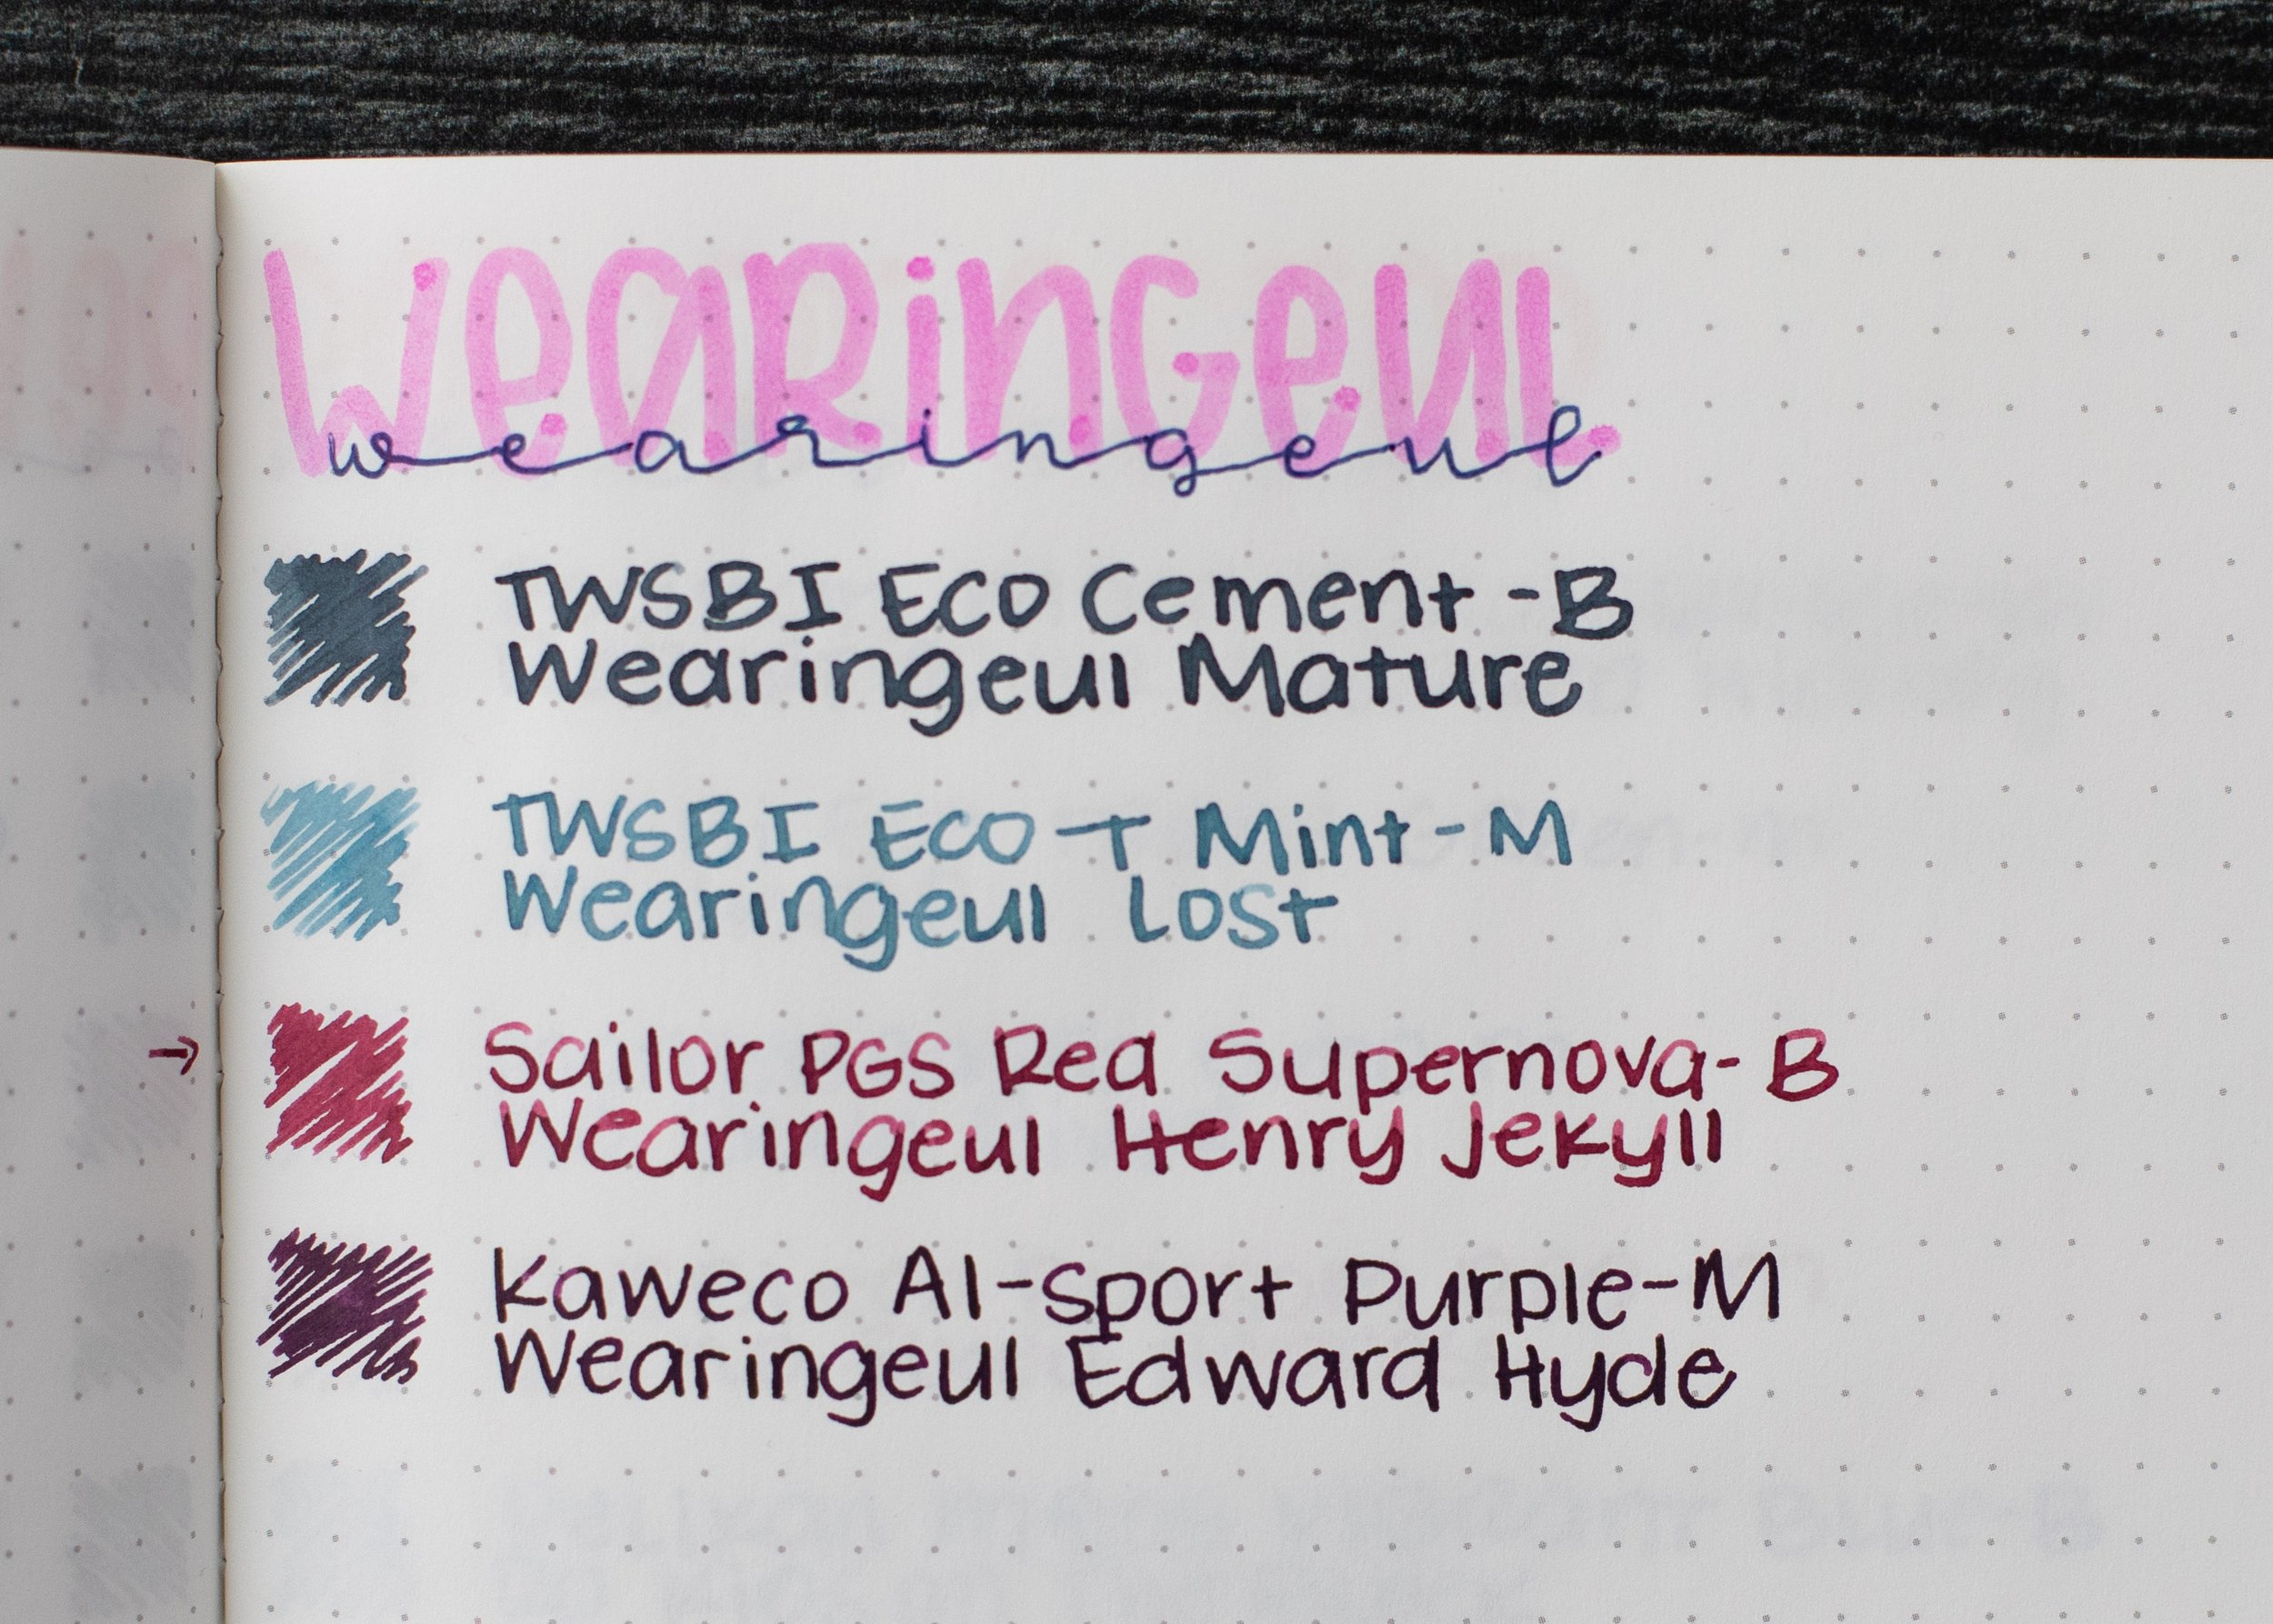 Wearingeul
wearingeul
TWSBI Eco Cement - B
Wearingeul Mature
TWSBI Eco-T Mint - M
Wearingeul Lost
Sailor PGS Red Supernova - B
Wearingeul Henry Jekyll
Kaweco Al-sport Purple - M
Wearingeul Edward Hyde